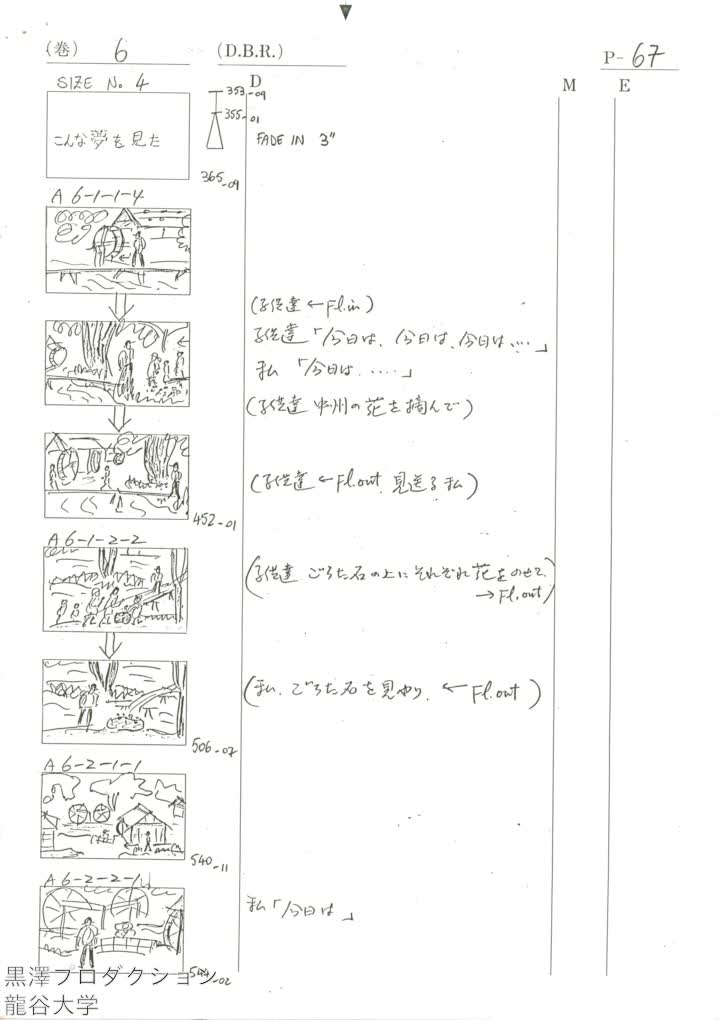 (巻) 6 (D.B.R.) P-67
SIZE No. 4 D M E
353-09
355-01
こんな夢を見た FADE IN 3"
365-09
A 6-1-1-4
(子供達 ← Fl.in)
子供達「今日は、今日は、今日は‥‥」
私「今日は‥‥」
(子供達 中州の花を摘んで)
(子供達 ← Fl.out 見送る私)
452-01
A 6-1-2-2
(子供達 ごろた石の上にそれぞれ花をのせて、
→ Fl.out)
(私、ごろた石を見やり、← Fl.out)
506-07
A 6-2-1-1
540-11
A 6-2-2-1
私「今日は」
-02
黒澤プロダクション
龍谷大学